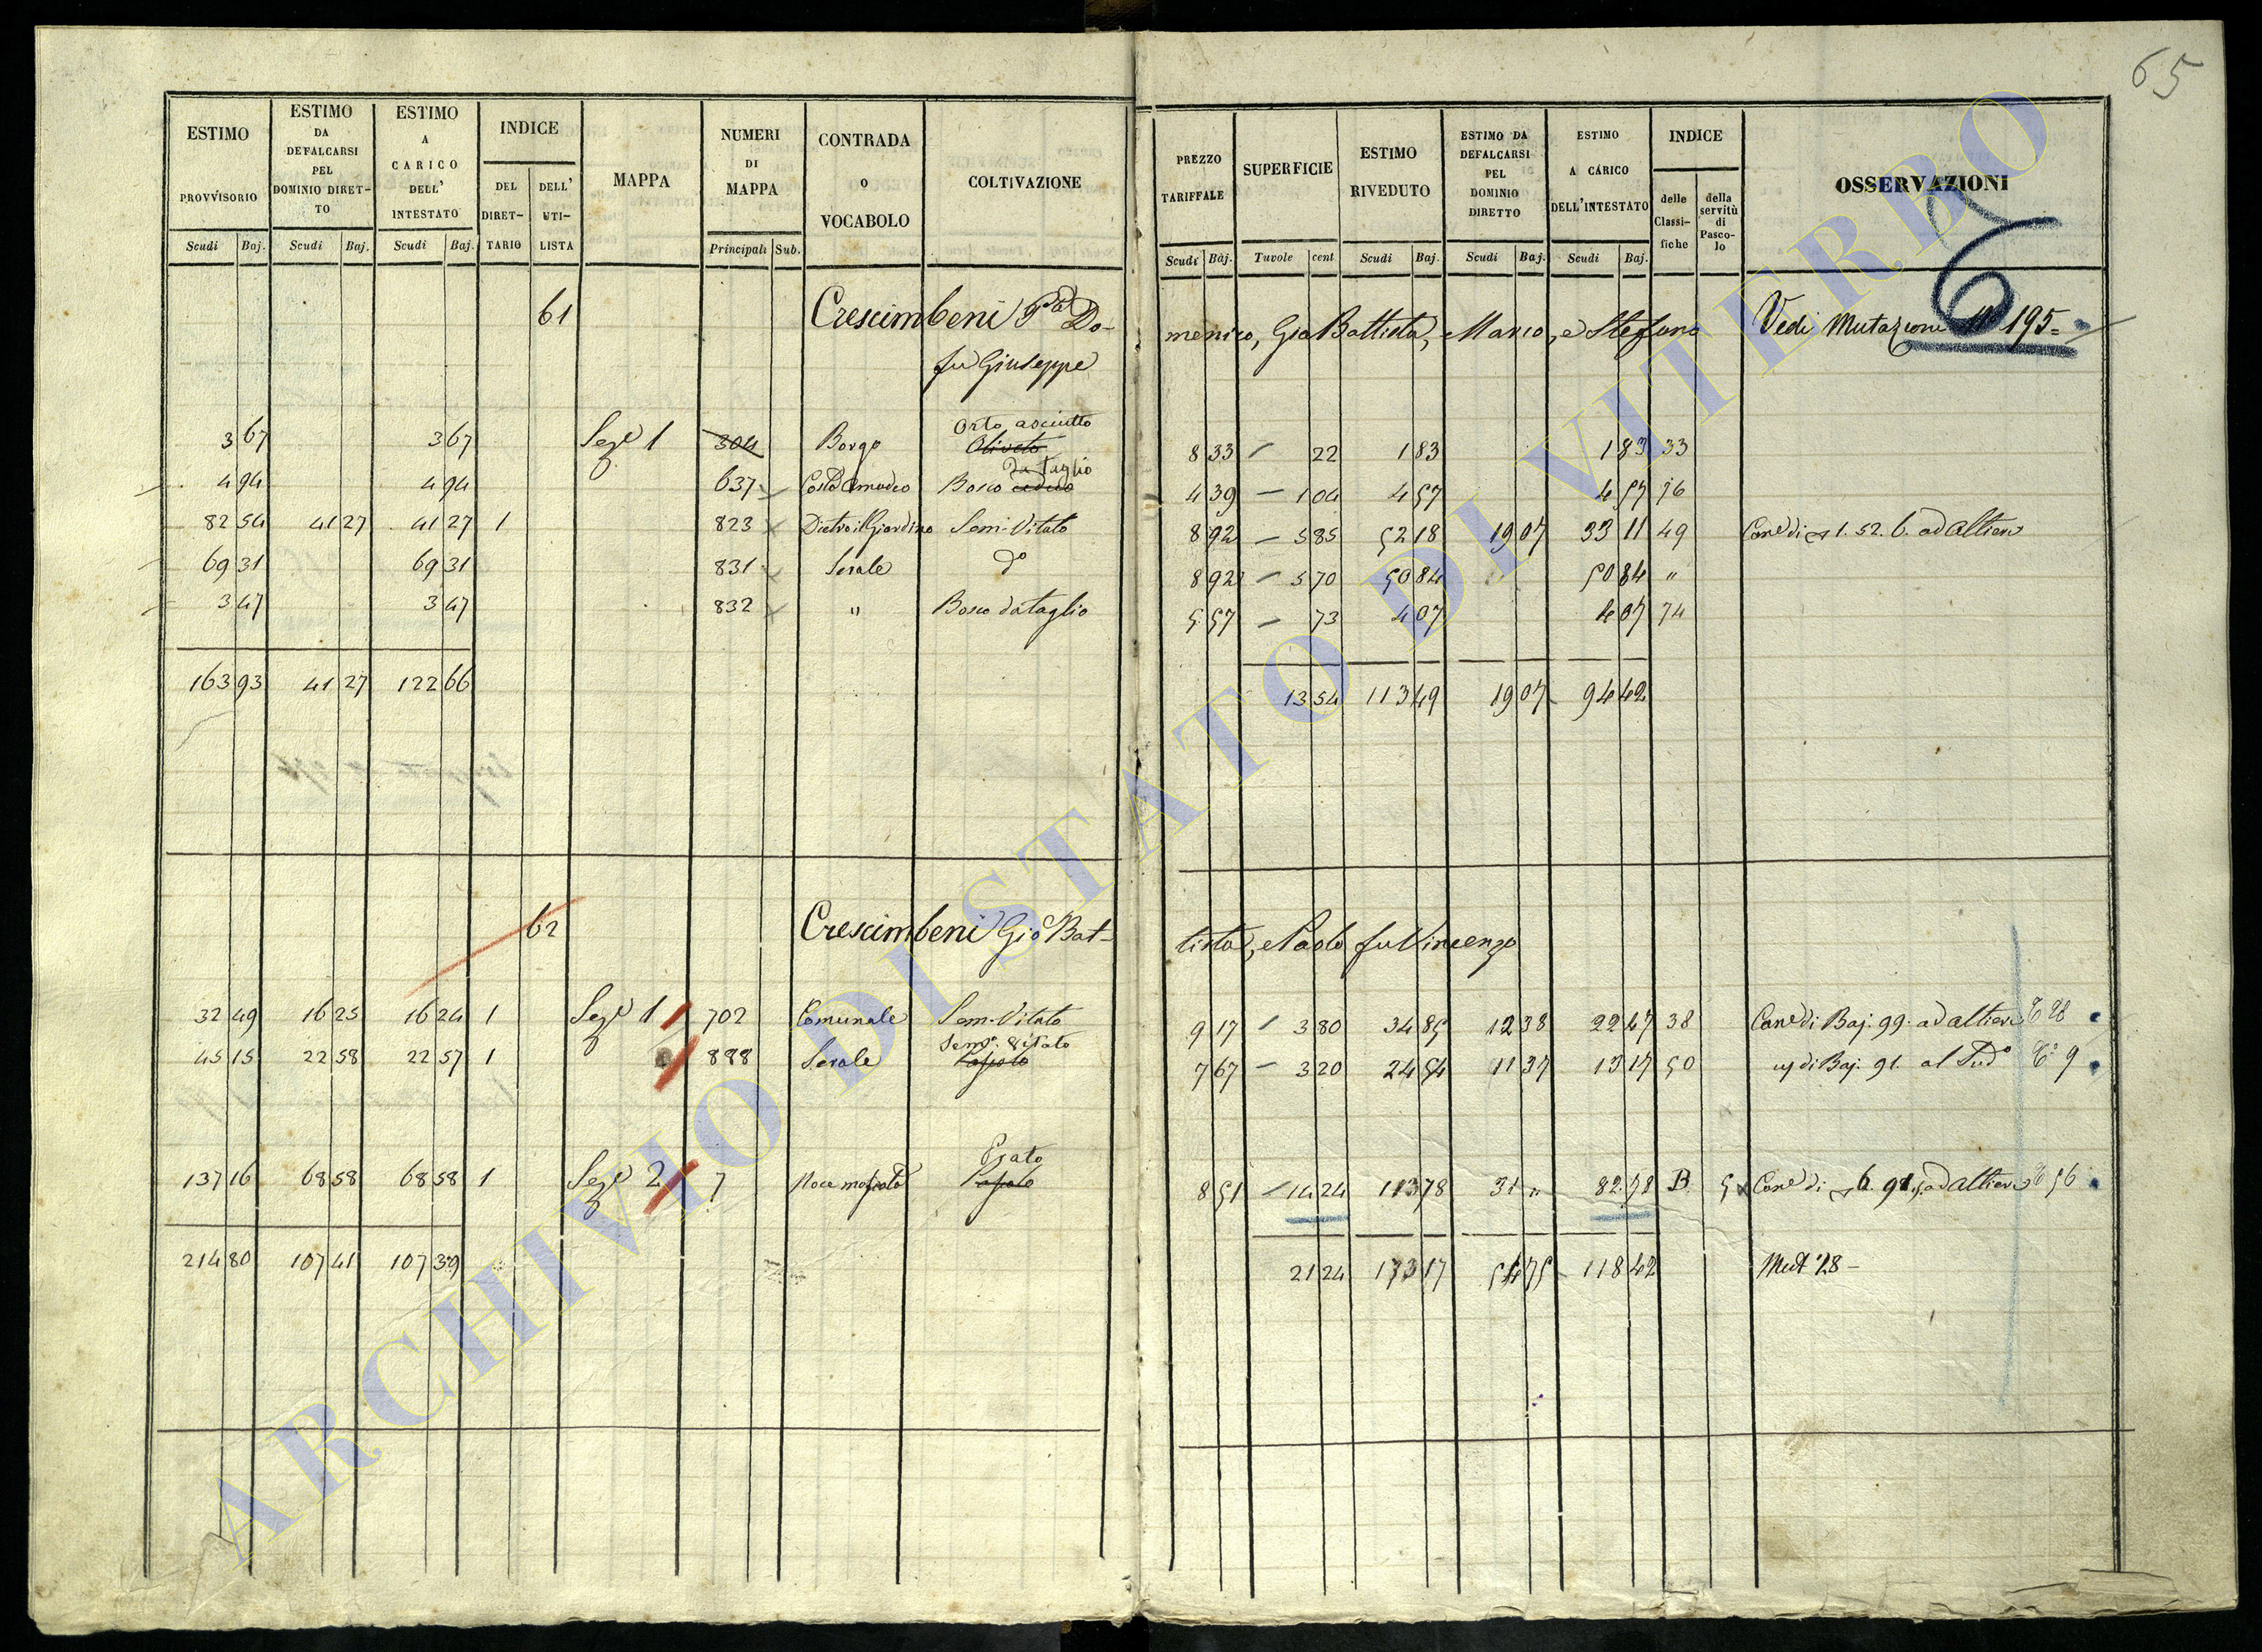 65
ESTIMO PROVVISORIO
ESTIMO DA DEFALCARSI PEL DOMINIO DIRETTO
ESTIMO A CARICO DELL' INTESTATO
INDICE
DEL DIRETTARIO
DELL' UTILISTA
MAPPA
NUMERI DI MAPPA
CONTRADA O VOCABOLO
COLTIVAZIONE
PREZZO TARIFFALE
SUPERFICIE
ESTIMO RIVEDUTO
ESTIMO DA DEFALCARSI PEL DOMINIO DIRETTO
ESTIMO A CARICO DELL'INTESTATO
INDICE
delle Classifiche
della servitù di Pascolo
OSSERVAZIONI
Scudi Baj. Scudi Baj. Scudi Baj. Principali Sub. Scudi Baj. Tavole cent Scudi Baj. Scudi Baj. Scudi Baj.
6
61 Crescimbeni Do-menico, Gio Battista, Marco, e Stefano Vedi Mutazione N 195
fu Giuseppe
Orto asciutto
3 67 3 67 Sez 1 304 Borgo Oliveto 8 33 22 1 83 1 83 33
da Taglio
4 94 4 94 637 Costa Amadeo Bosco ceduo 4 39 1 04 4 57 4 57 76
82 54 41 27 41 27 1 823 Dietro il Giardino Sem. Vitato 8 92 5 85 52 18 19 07 33 11 49 1.52.6. ad Altieri
69 31 69 31 831 Serale do 8 92 5 70 50 84 50 84 "
3 47 3 47 832 " Bosco da taglio 5 57 73 4 07 4 07 74
163 93 41 27 122 66 13 54 113 49 19 07 94 42
62 Crescimbeni Gio Bat-tista, e Paolo fu Vincenzo
32 49 16 25 16 24 1 Sez 1 702 Comunale Sem. Vitato 9 17 3 80 34 85 12 38 22 47 38 Cane di Baj. 99. ad Altieri
Sem. Vitato
45 15 22 58 22 57 1 888 Serale Pascolo 7 67 3 20 24 54 11 37 13 17 50 di Baj. 91. al Sud
Prato
137 16 68 58 68 58 1 Sez 2 7 Pascolo 8 51 14 24 113 78 31 " 82 78 B 5 Cane di 6. 91. ad Altieri
214 80 107 41 107 39 21 24 173 17 54 75 118 42 Mut 28 -
ARCHIVIO DI STATO DI VITERBO